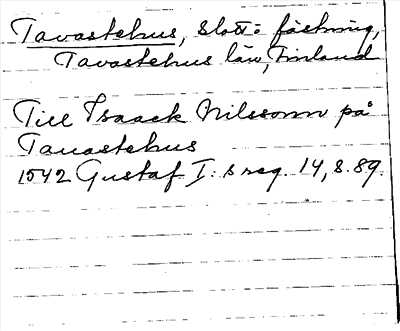 Tavastehus, slott o fästning,
Tavastehus län, Finland
Till Isaack Nilssonn på
Tauastehus
1542 Gustaf I:s reg. 14, s. 89.